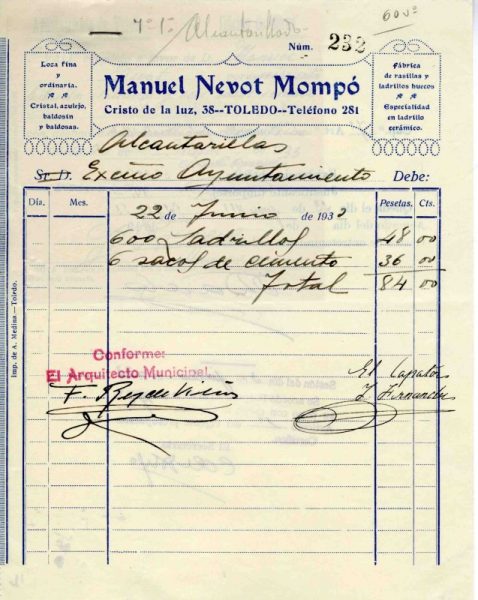 Alcantarillado
Núm. 232
Loza fina
y
ordinaria.
Cristal, azulejo,
baldosín
y baldosas.
Manuel Nevot Mompó
Cristo de la luz, 38--TOLEDO--Teléfono 281
Fábrica
de rasillas y
ladrillos huecos
Especialidad
en ladrillo
cerámico.
Alcantarillas
Sr. D. Excmo Ayuntamiento Debe:
Día. Mes. Pesetas. Cts.
22 de Junio de 193
600 Ladrillos 48 00
6 sacos de cimento 36 00
Total 84 00
Imp. de A. Medina — Toledo.
Conforme:
El Arquitecto Municipal,
El Capataz